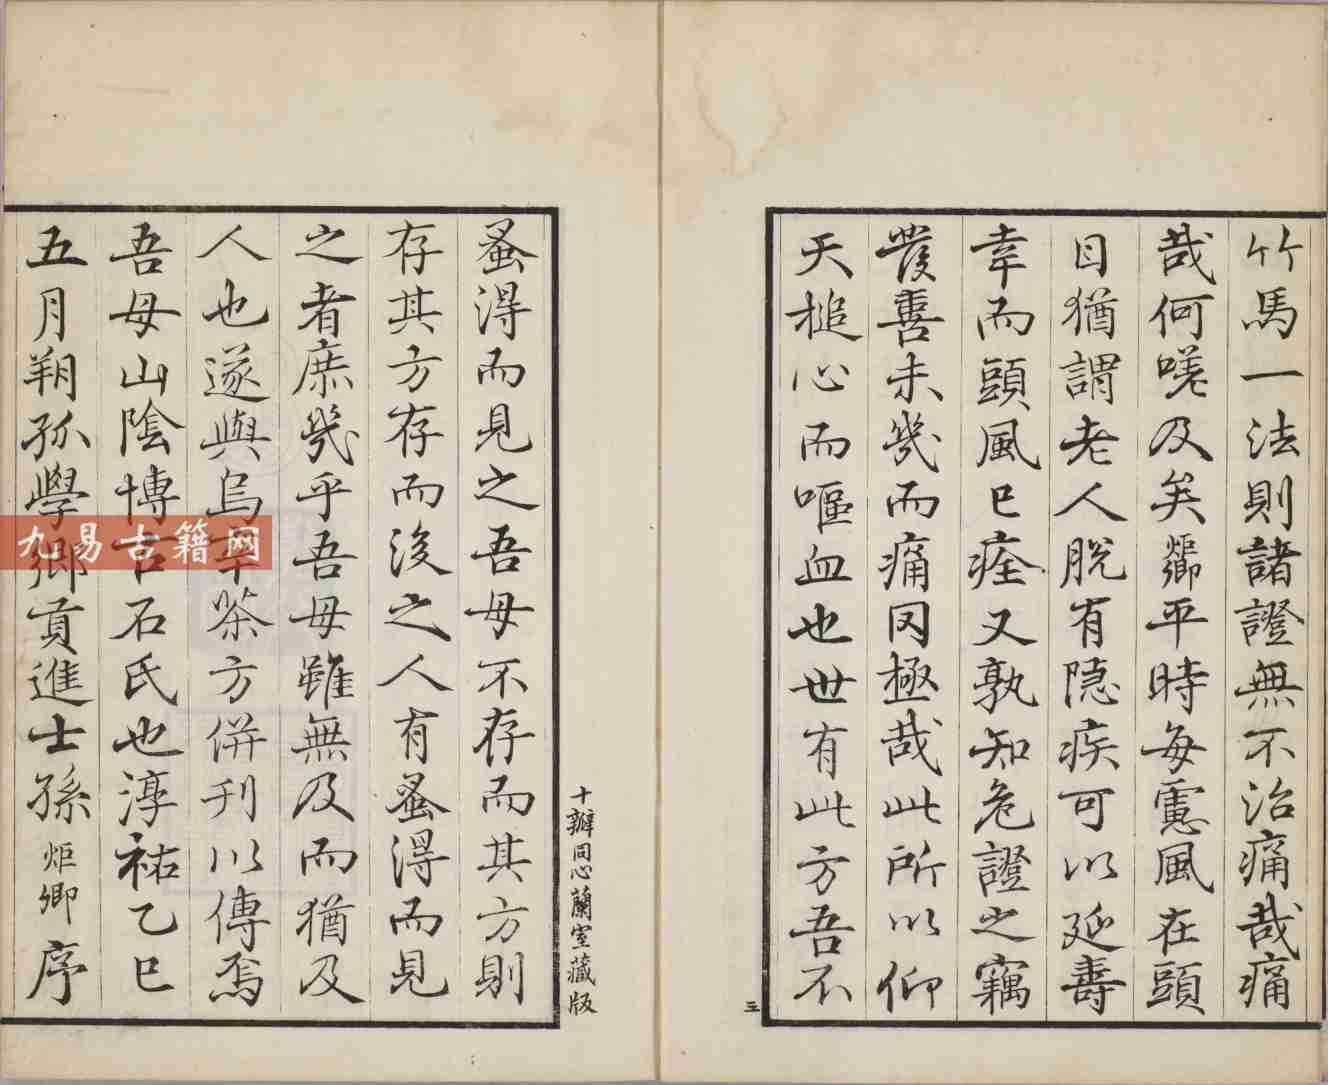 竹馬一法則諸證無不治痛哉痛
哉何嗟及矣爇平時每慮風在頭
目猶謂老人脫有隱疾可以延壽
幸而頭風已痊又孰知危證之竊
發善未幾而痛罔極哉此所以仰
天槌心而嘔血也世有此方吾不
三
蚤得而見之吾母不存而其方則
存其方存而後之人有蚤得而見
之者庶幾乎吾母雖無及而猶及
人也遂與烏辛茶方併刊以傳焉
吾母山陰博古石氏也淳祐乙巳
五月朔孤學鄉貢進士孫炬卿序
十瓣同心蘭室藏版
九易古籍网